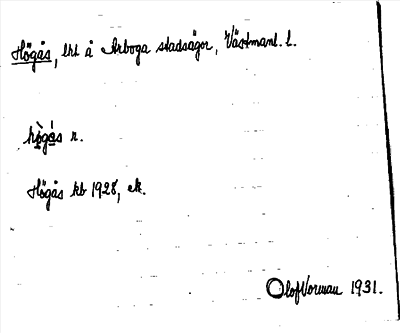 Högås, lht å Arboga stadsägor, Västmanl. l.
hògás n.
Högås kb 1928, ek.
Olof Norman 1931.